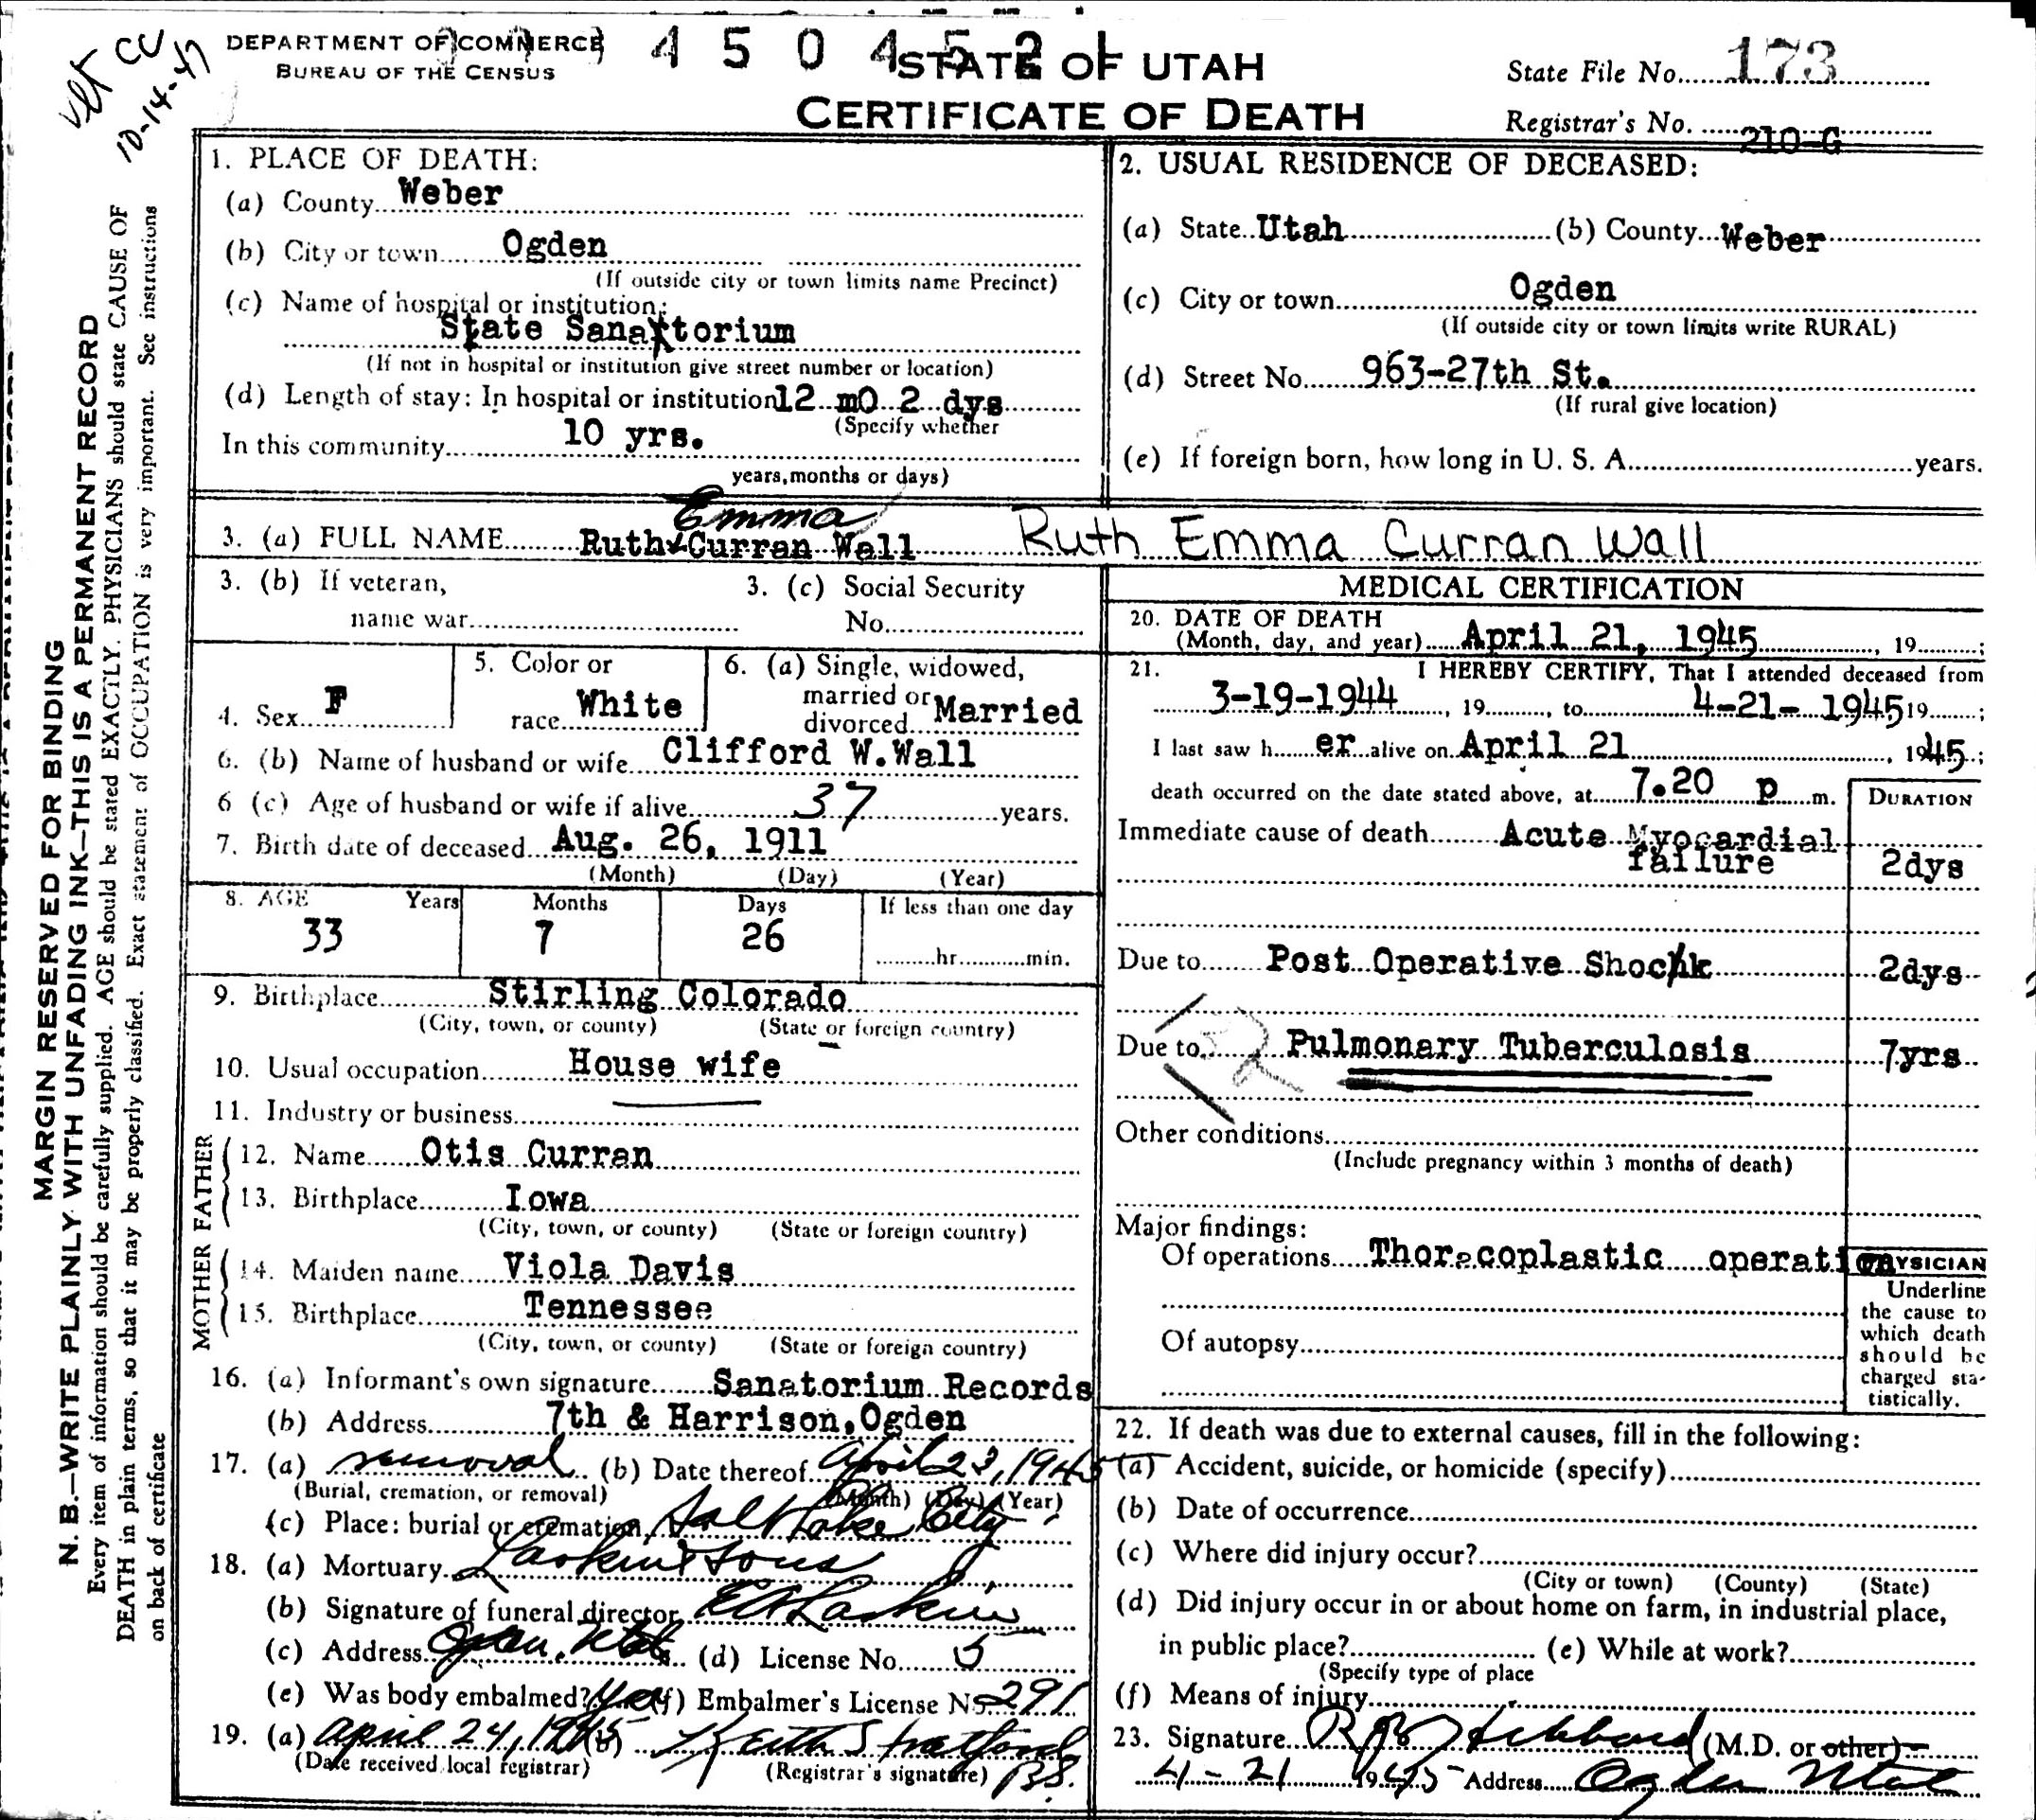 Vet CC
10-14-47
DEPARTMENT OF COMMERCE
BUREAU OF THE CENSUS
STATE OF UTAH
CERTIFICATE OF DEATH
State File No. 173
Registrar's No. 210-G
MARGIN RESERVED FOR BINDING
N. B.—WRITE PLAINLY WITH UNFADING INK—THIS IS A PERMANENT RECORD
Every item of information should be carefully supplied. AGE should be stated EXACTLY. PHYSICIANS should state CAUSE OF
DEATH in plain terms, so that it may be properly classified. Exact statement of OCCUPATION is very important. See instructions
on back of certificate
1. PLACE OF DEATH:
(a) County Weber
(b) City or town Ogden
(If outside city or town limits name Precinct)
(c) Name of hospital or institution:
State Sanatorium
(If not in hospital or institution give street number or location)
(d) Length of stay: In hospital or institution 12 mO 2 dys
(Specify whether
In this community 10 yrs.
years, months or days)
2. USUAL RESIDENCE OF DECEASED:
(a) State Utah (b) County Weber
(c) City or town Ogden
(If outside city or town limits write RURAL)
(d) Street No. 963-27th St.
(If rural give location)
(e) If foreign born, how long in U. S. A. years.
Emma
3. (a) FULL NAME Ruth Curran Wall Ruth Emma Curran Wall
3. (b) If veteran,
name war
3. (c) Social Security
No.
4. Sex F
5. Color or
race White
6. (a) Single, widowed,
married or
divorced Married
6. (b) Name of husband or wife Clifford W.Wall
6 (c) Age of husband or wife if alive 37 years.
7. Birth date of deceased Aug. 26, 1911
(Month) (Day) (Year)
8. AGE Years Months Days If less than one day
33 7 26 hr. min.
9. Birthplace Stirling Colorado
(City, town, or county) (State or foreign country)
10. Usual occupation House wife
11. Industry or business
FATHER
12. Name Otis Curran
13. Birthplace Iowa
(City, town, or county) (State or foreign country)
MOTHER
14. Maiden name Viola Davis
15. Birthplace Tennessee
(City, town, or county) (State or foreign country)
16. (a) Informant's own signature Sanatorium Records
(b) Address 7th & Harrison,Ogden
17. (a) removal (b) Date thereof April 23, 1945
(Burial, cremation, or removal) (Month) (Day) (Year)
(c) Place: burial or cremation Salt Lake City
18. (a) Mortuary Larkin & Sons
(b) Signature of funeral director Larkin
(c) Address Ogden, Utah (d) License No. 5
(e) Was body embalmed? Yes (f) Embalmer's License No. 291
19. (a) April 24, 1945 (b) Keith Stratford
(Date received local registrar) (Registrar's signature) BS.
MEDICAL CERTIFICATION
20. DATE OF DEATH
(Month, day, and year) April 21, 1945, 19 ;
21. I HEREBY CERTIFY, That I attended deceased from
3-19-1944, 19 , to 4-21- 1945 19 ;
I last saw h er alive on April 21, 1945;
death occurred on the date stated above, at 7.20 p m.
DURATION
Immediate cause of death Acute Myocardial
failure 2dys
Due to Post Operative Shock 2dys
Due to Pulmonary Tuberculosis 7yrs
Other conditions
(Include pregnancy within 3 months of death)
Major findings:
Of operations Thoracoplastic operation
Of autopsy
PHYSICIAN
Underline
the cause to
which death
should be
charged sta-
tistically.
22. If death was due to external causes, fill in the following:
(a) Accident, suicide, or homicide (specify)
(b) Date of occurrence
(c) Where did injury occur?
(City or town) (County) (State)
(d) Did injury occur in or about home on farm, in industrial place,
in public place? (e) While at work?
(Specify type of place
(f) Means of injury
23. Signature Hibbard (M.D. or other)
4-21 1945 Address Ogden Utah